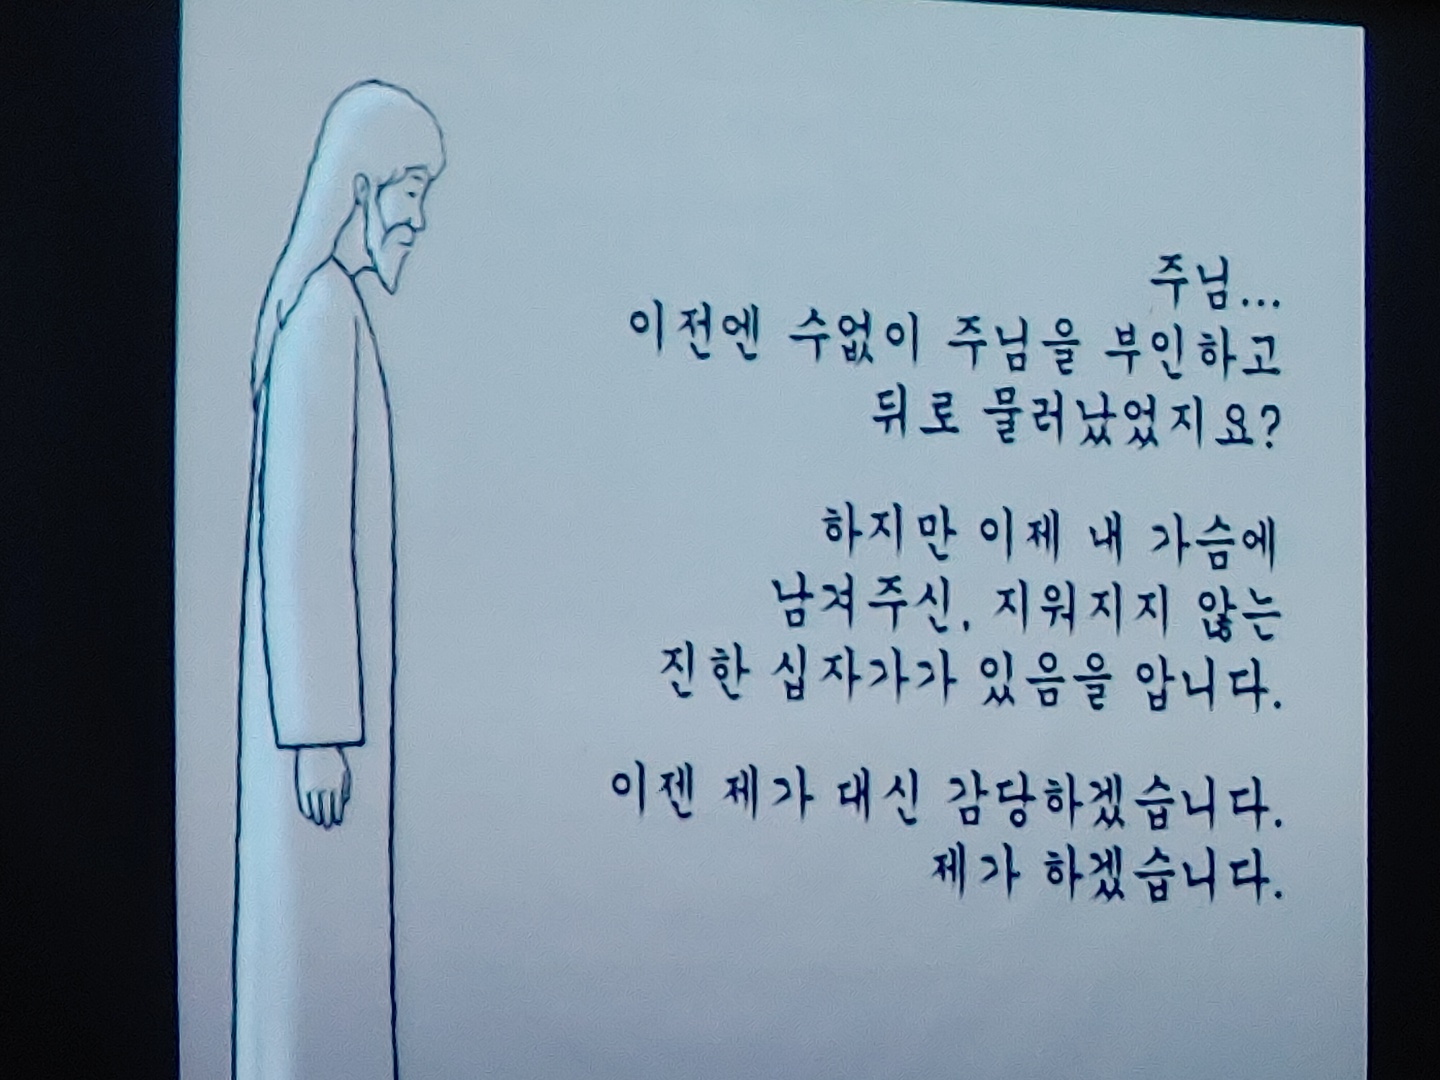 주님...
이전엔 수없이 주님을 부인하고
뒤로 물러났었지요?
하지만 이제 내 가슴에
남겨주신, 지워지지 않는
진한 십자가가 있음을 압니다.
이젠 제가 대신 감당하겠습니다.
제가 하겠습니다.